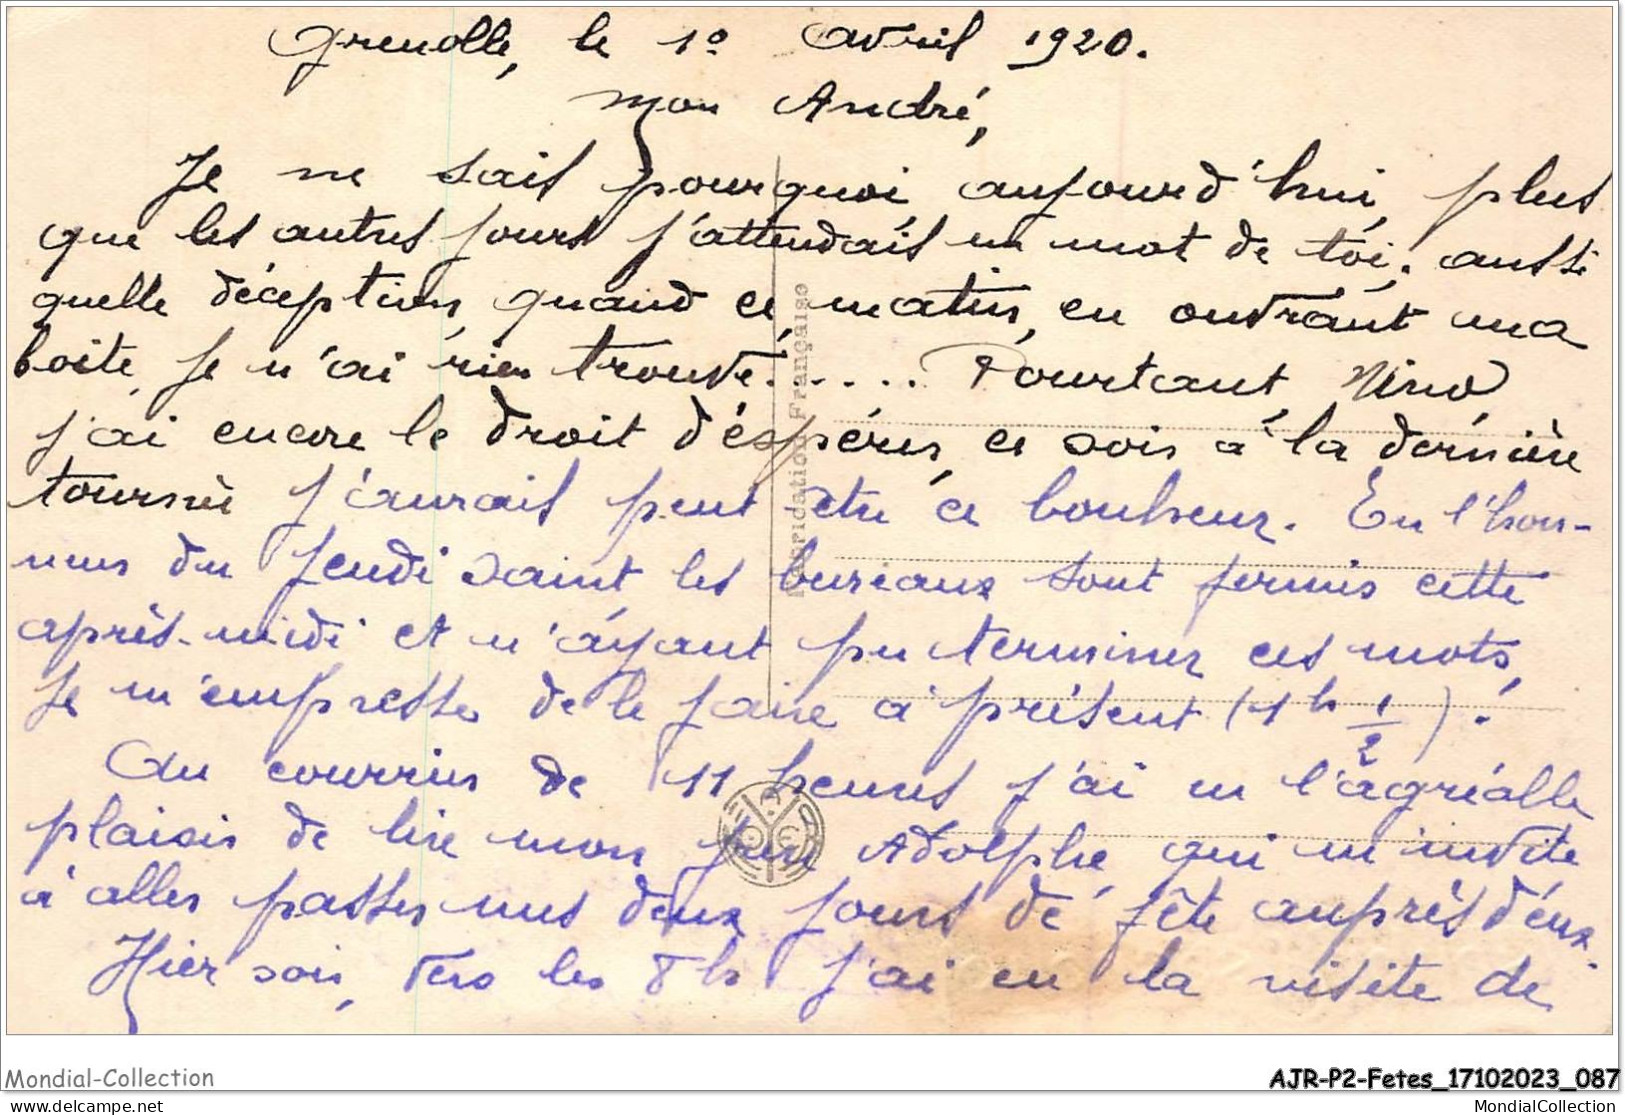 Grenoble, le 1º Avril 1920.
Mon André,
Je ne sais pourquoi aujourd'hui, plus
que les autres jours j'attendais un mot de toi. aussi
quelle déception, quand ce matin, en ouvrant ma
boite, je n'ai rien trouvé...... Pourtant, Nino,
j'ai encore le droit d'espérer, ce soir à la dernière
tournée j'aurais peut être ce bonheur. En l'hon-
neur du Jeudi Saint les bureaux sont fermés cette
après-midi et n'ayant pu terminer ces mots,
je m'empresse de le faire à présent (1h 1/2).
Au courrier de 11 heures j'ai eu l'agréable
plaisir de lire mon Adolphe, qui m'invite
à aller passer mes deux jours de fête auprès d'eux.
Hier soir, vers les 8h j'ai eu la visite de
Inspiration Française
Mondial-Collection
AJR-P2-Fetes_17102023_087
www.delcampe.net
MondialCollection